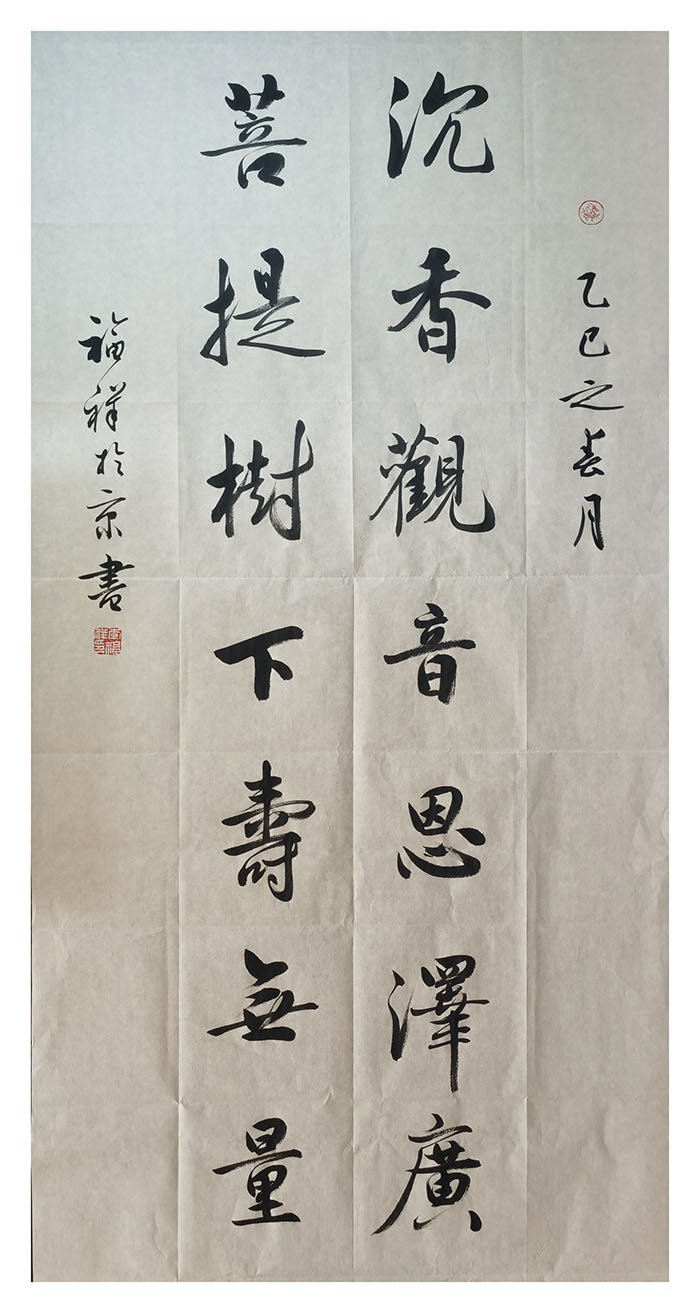 乙巳之春月
沉香觀音恩澤廣
菩提樹下壽無量
福祥於京書